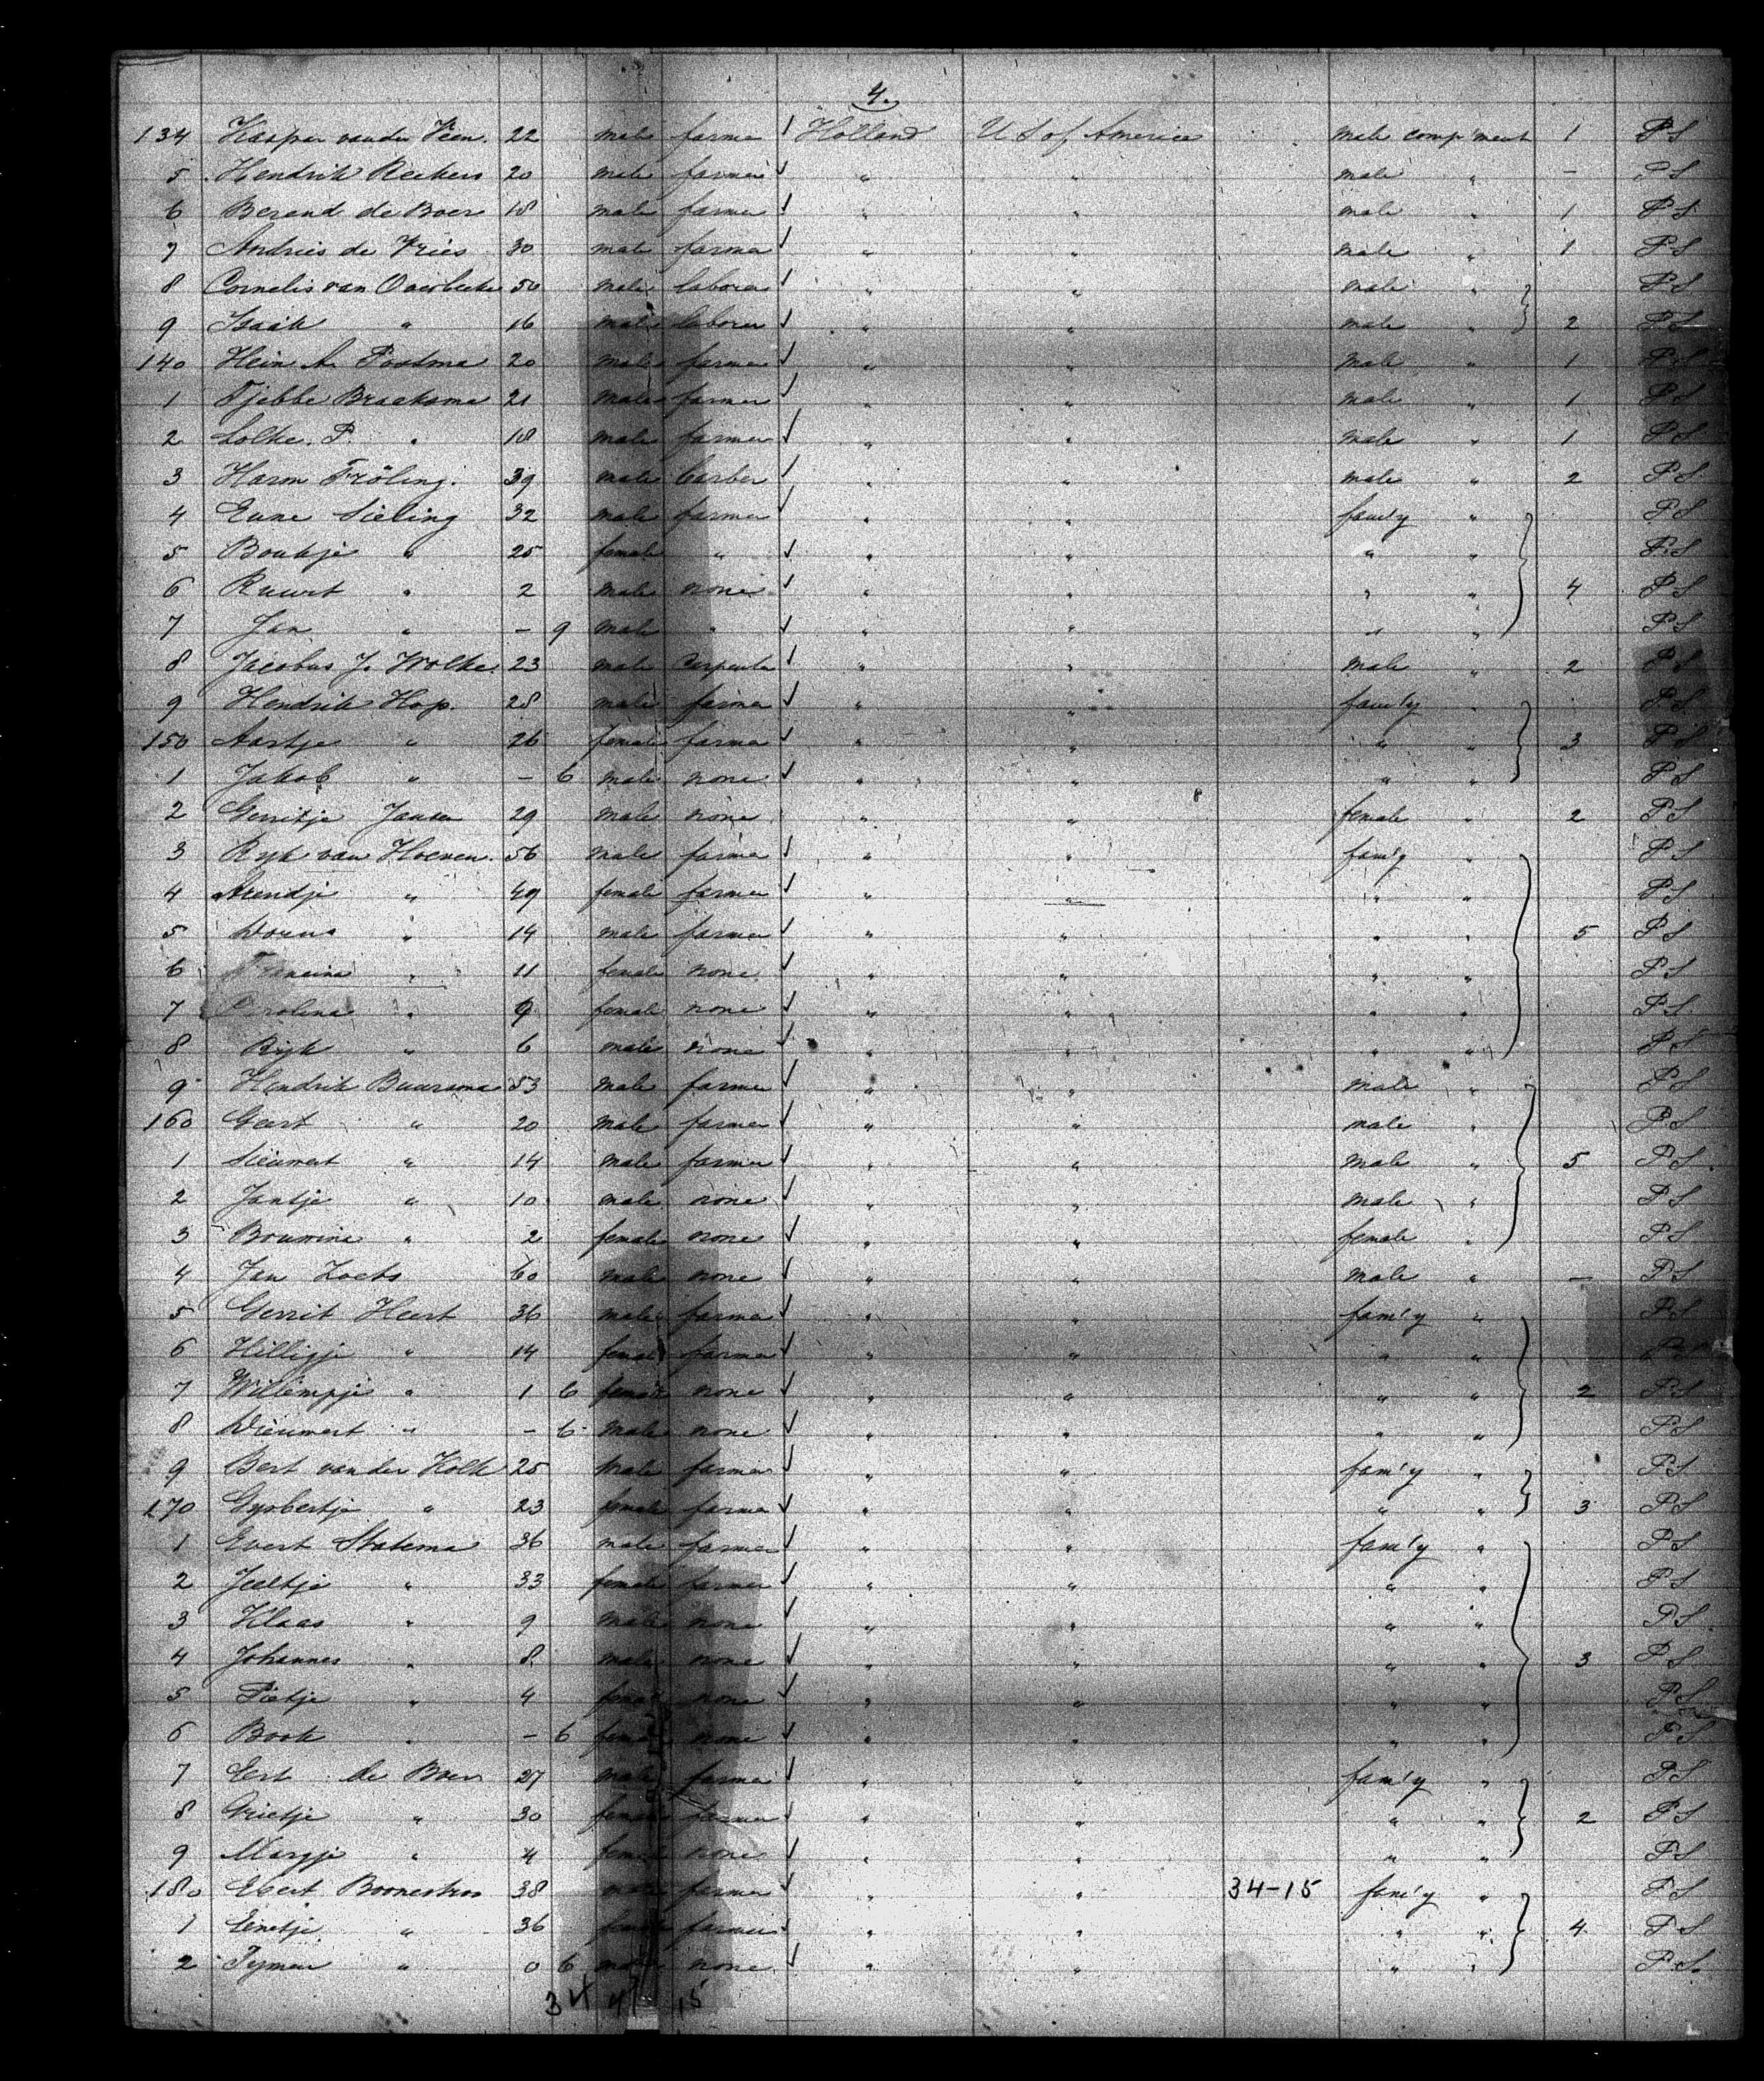 4.
134 Kaspar van der Veen. 22 male farmer Holland U S of America male comp'ment 1 PS
5 Hendrik Reekers 20 male farmer " " male " - PS
6 Berend de Boer 18 male farmer " " male " 1 PS
7 Andries de Vries 30 male farmer " " male " 1 PS
8 Cornelis van Overbeeke 50 male laborer " " male " PS
9 Isaäk " 16 male laborer " " male " 2 PS
140 Hein A. Postma 20 male farmer " " male " 1 PS
1 Tjebbe Braaksma 21 male farmer " " male " 1 PS
2 Lolke. P. " 18 male farmer " " male " 1 PS
3 Harm Fröling. 39 male barber " " male " 2 PS
4 Eune Sieling 32 male farmer " " fam'y " PS
5 Boukje " 25 female " " " " " PS
6 Ruurt " 2 male none " " " " 4 PS
7 Jan " - 9 male " " " " " PS
8 Jacobus J. Wolke. 23 male carpenter " " male " 2 PS
9 Hendrik Hop. 28 male farmer " " fam'y " PS
150 Aartje " 26 female farmer " " " " 3 PS
1 Jakob " - 6 male none " " " " PS
2 Gerritje Jansen 29 male none " " female " 2 PS
3 Ryk van Hoeven. 56 male farmer " " fam'y " PS
4 " 49 female farmer " " " " PS
5 " 14 male farmer " " " " 5 PS
6 Francina " 11 female none " " " " PS
7 Carolina " 9 female none " " " " PS
8 Ryk " 6 male none " " " " PS
9 Hendrik Buursma 53 male farmer " " male " PS
160 Geert " 20 male farmer " " male " PS
1 Sieuwert " 14 male farmer " " male " 5 PS
2 Jantje " 10 male none " " male " PS
3 Bouwina " 2 female none " " female " PS
4 Jan Loets 60 male none " " male " - PS
5 Gerrit Heert 36 male farmer " " fam'y " PS
6 Hilligje " 14 female farmer " " " " PS
7 Willempje " 1 6 female none " " " " 2 PS
8 " - 6 male none " " " " PS
9 Bert van der Kolk 25 male farmer " " fam'y " PS
170 Gysbertje " 23 female farmer " " " " 3 PS
1 Evert Statema 36 male farmer " " fam'y " PS
2 Jeltje " 33 female farmer " " " " PS
3 Klaas " 9 male none " " " " PS
4 Johannes " 8 male none " " " " 3 PS
5 Pietje " 4 female none " " " " PS
6 Book " - 6 female none " " " " PS
7 Eert de Boer 27 male farmer " " fam'y " PS
8 Grietje " 30 female farmer " " " " 2 PS
9 Margje " 4 female none " " " " PS
180 Evert Boonestroo 38 male farmer " " 34-15 fam'y " PS
1 Eentje " 36 female farmer " " " " 4 PS
2 Tymen " 0 6 male none " " " " PS.
34 47 15